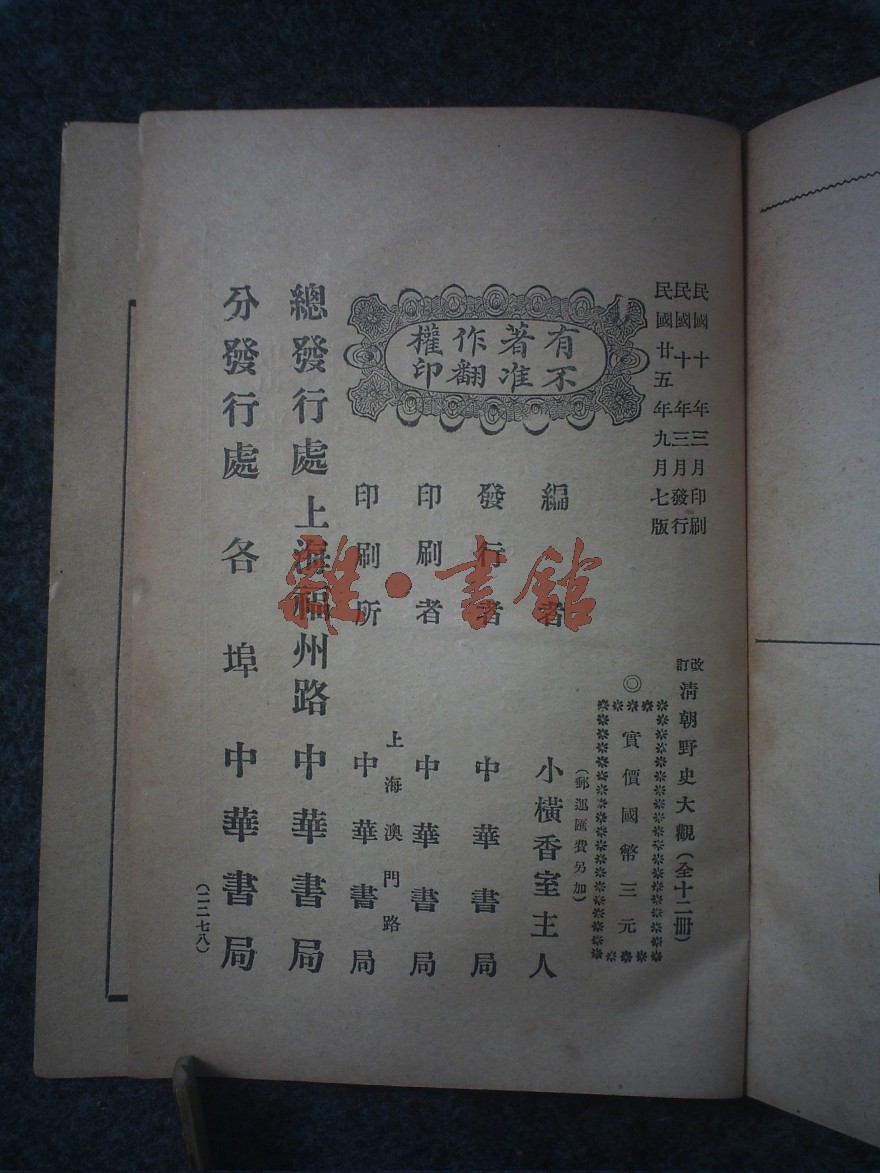 民國十年三月印刷
民國十年三月發行
民國廿五年九月七版
改訂清朝野史大觀（全十二冊）
◎實價國幣三元
（郵運匯費另加）
有著作權
不准翻印
編者 小橫香室主人
發行者 中華書局
印刷者 中華書局
印刷所 上海澳門路 中華書局
總發行處 上海福州路 中華書局
分發行處 各埠 中華書局
（一二七八）
雜·書館